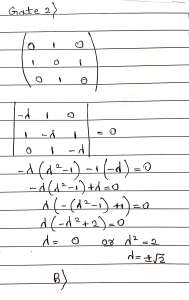 Gate 2)
0 1 0
1 0 1
0 1 0
-λ 1 0
1 -λ 1 = 0
0 1 -λ
-λ(λ²-1) -1(-λ) = 0
-λ(λ²-1)+λ = 0
λ(-(λ²-1)+1) = 0
λ(-λ²+2) = 0
λ = 0 or λ² = 2
λ = ±√2
B)